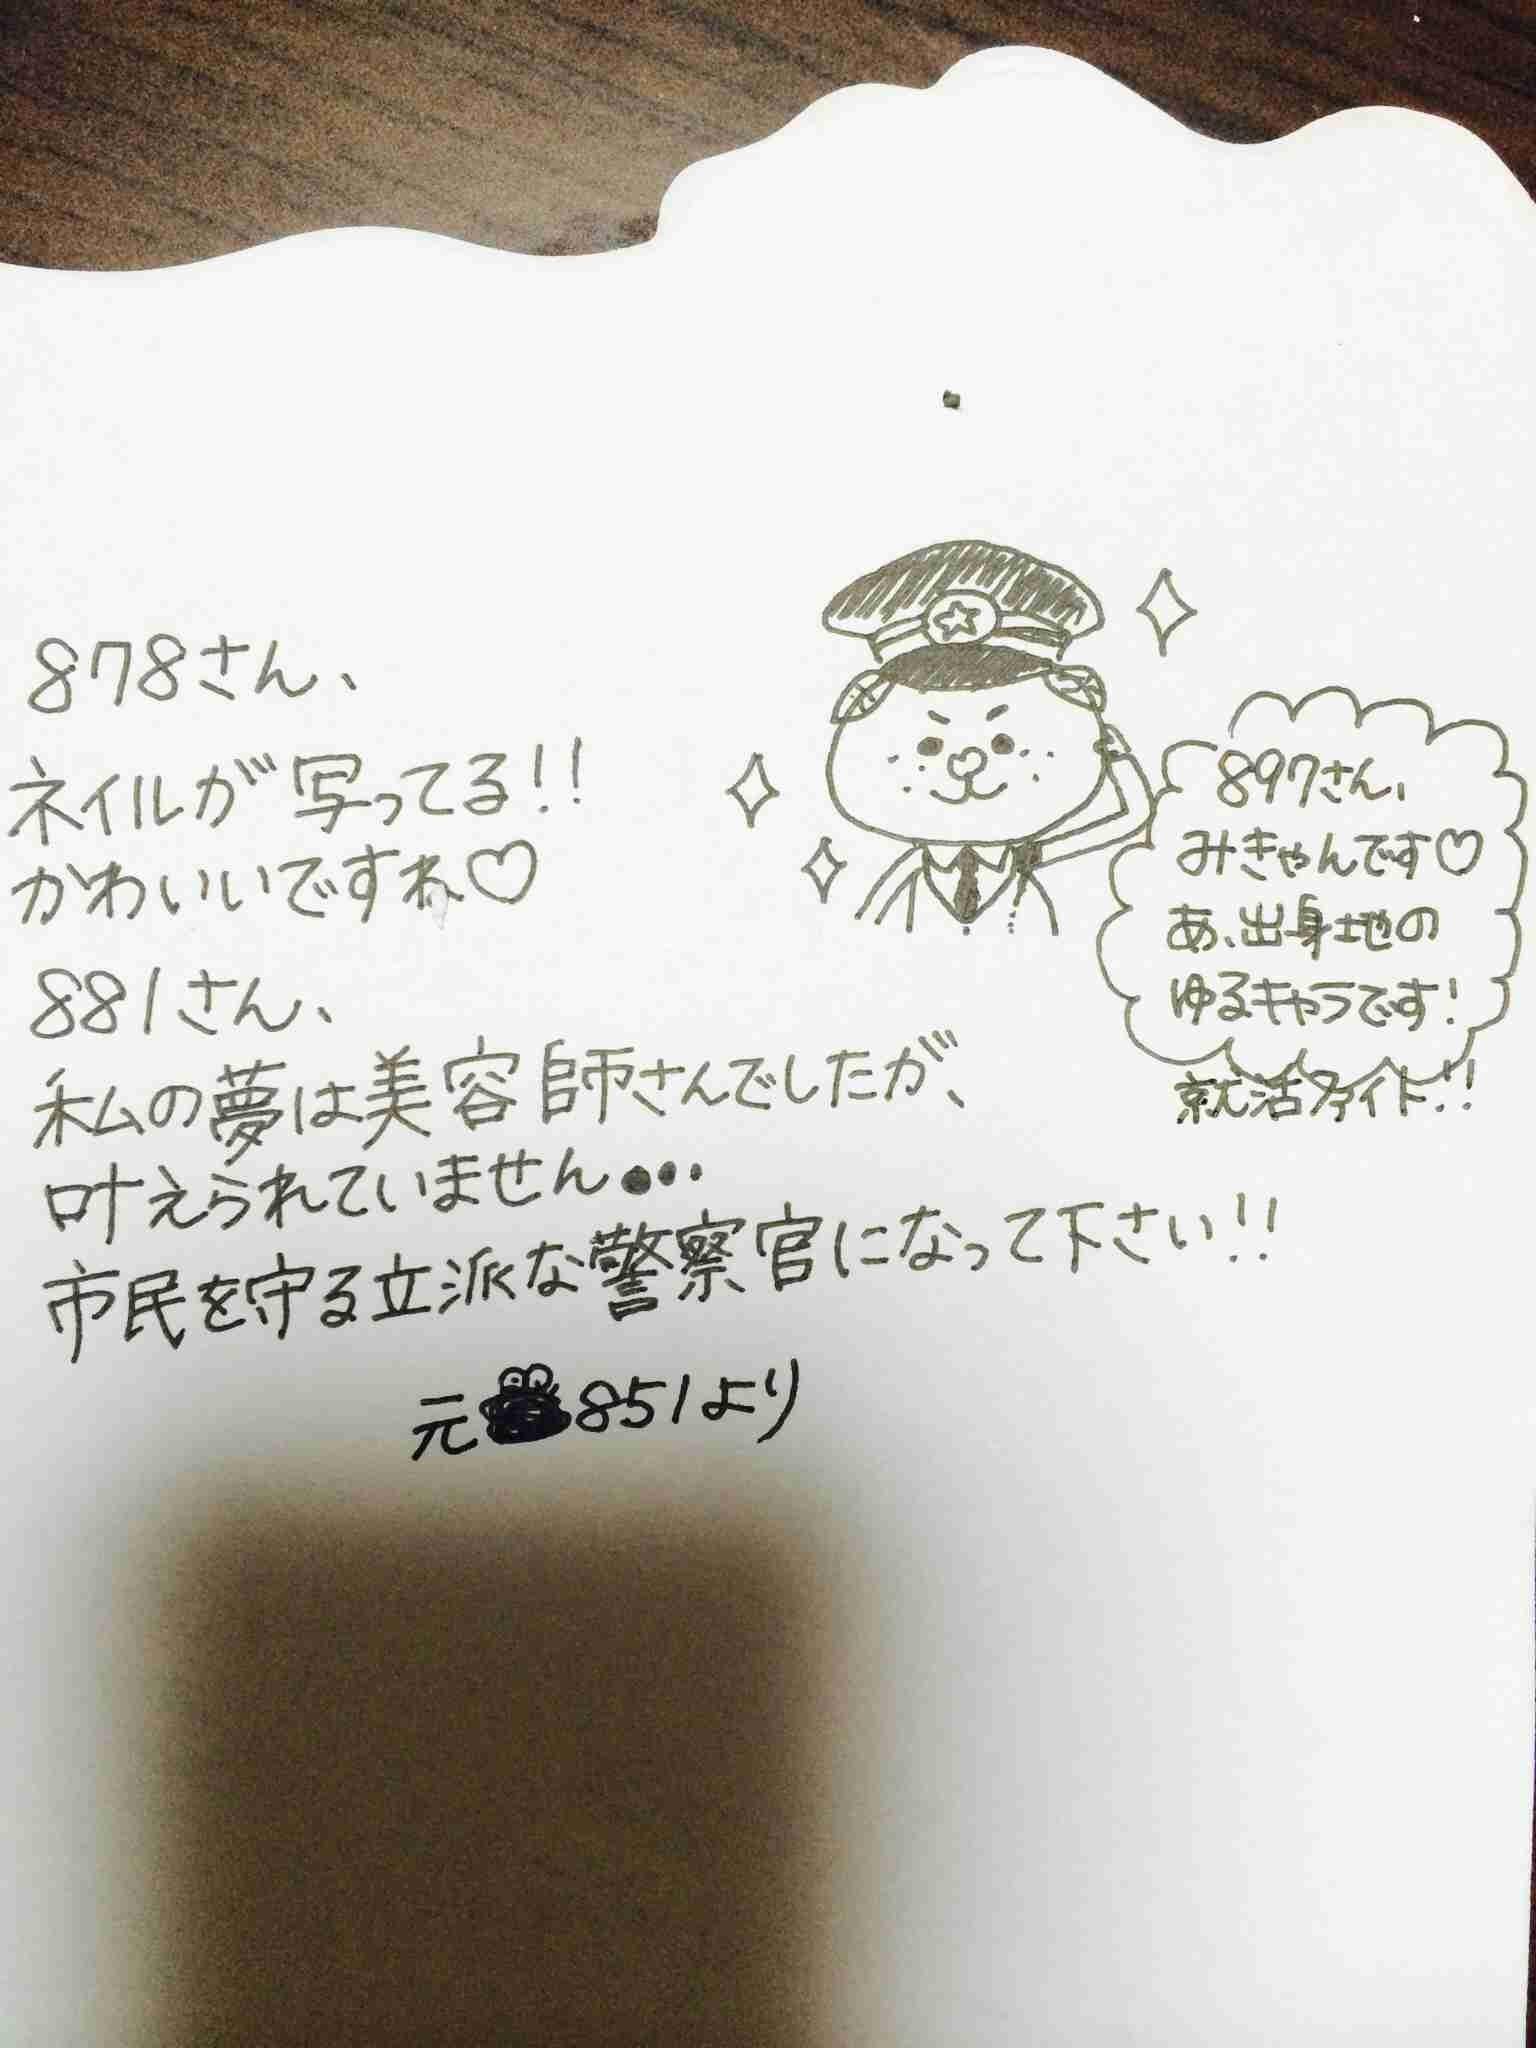 878さん、
ネイルが写ってる!!
かわいいですね♡
881さん、
私の夢は美容師さんでしたが、
叶えられていません•••
市民を守る立派な警察官になって下さい!!
元851より
897さん、
みきゃんです♡
あ、出身地の
ゆるキャラです!
就活ファイト!!